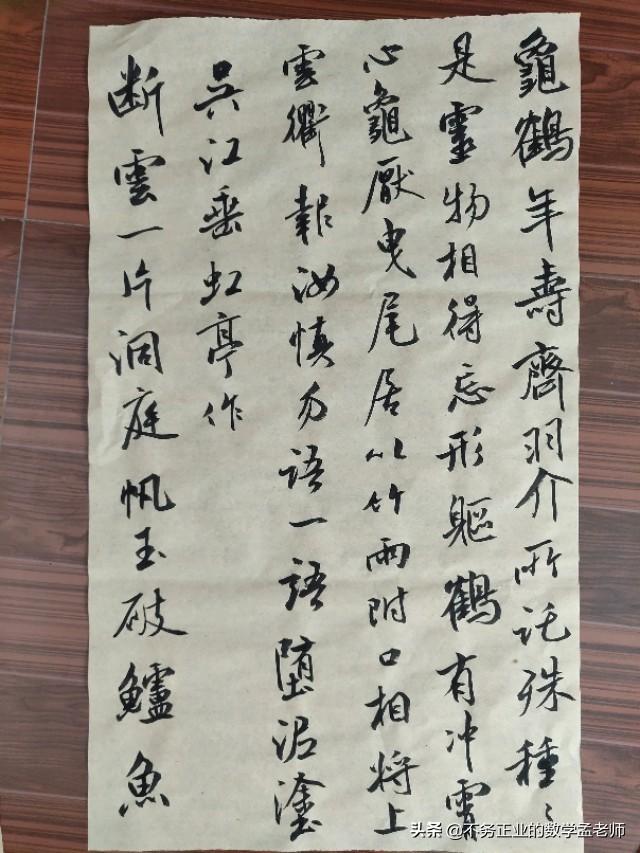 龜鶴年壽齊羽介所託殊種〻
是靈物相得忘形軀鶴有冲霄
心龜厭曳尾居以竹兩附口相將上
雲衢報汝慎勿語一語墮泥塗
吳江垂虹亭作
断雲一片洞庭帆玉破鱸魚
头条 @不务正业的数学孟老师